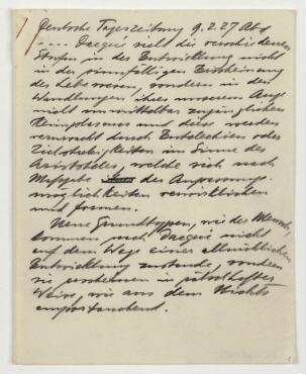 Deutsche Tageszeitung 9.2.27 Abd
.... Dacqué sieht die verschiedenen
Stufen in der Entwicklung nicht
in der sinnfälligen Erscheinung
der Lebewesen, sondern in den
Wandlungen ihres unserem Auge
nicht unmittelbar zugänglichen
Keimplasmas und diese werden
verursacht durch Entelechien oder
Zielstrebigkeiten im Sinne des
Aristoteles, welche sich nach
Maßgabe der Anpassungs-
möglichkeiten verwirklichen
und formen.
Neue Grundtypen, wie der Mensch,
kommen nach Dacqué nicht
auf dem Wege einer allmählichen
Entwicklung zustande, sondern
sie erscheinen in rätselhafter
Weise, wie aus dem Nichts
emportauchend.